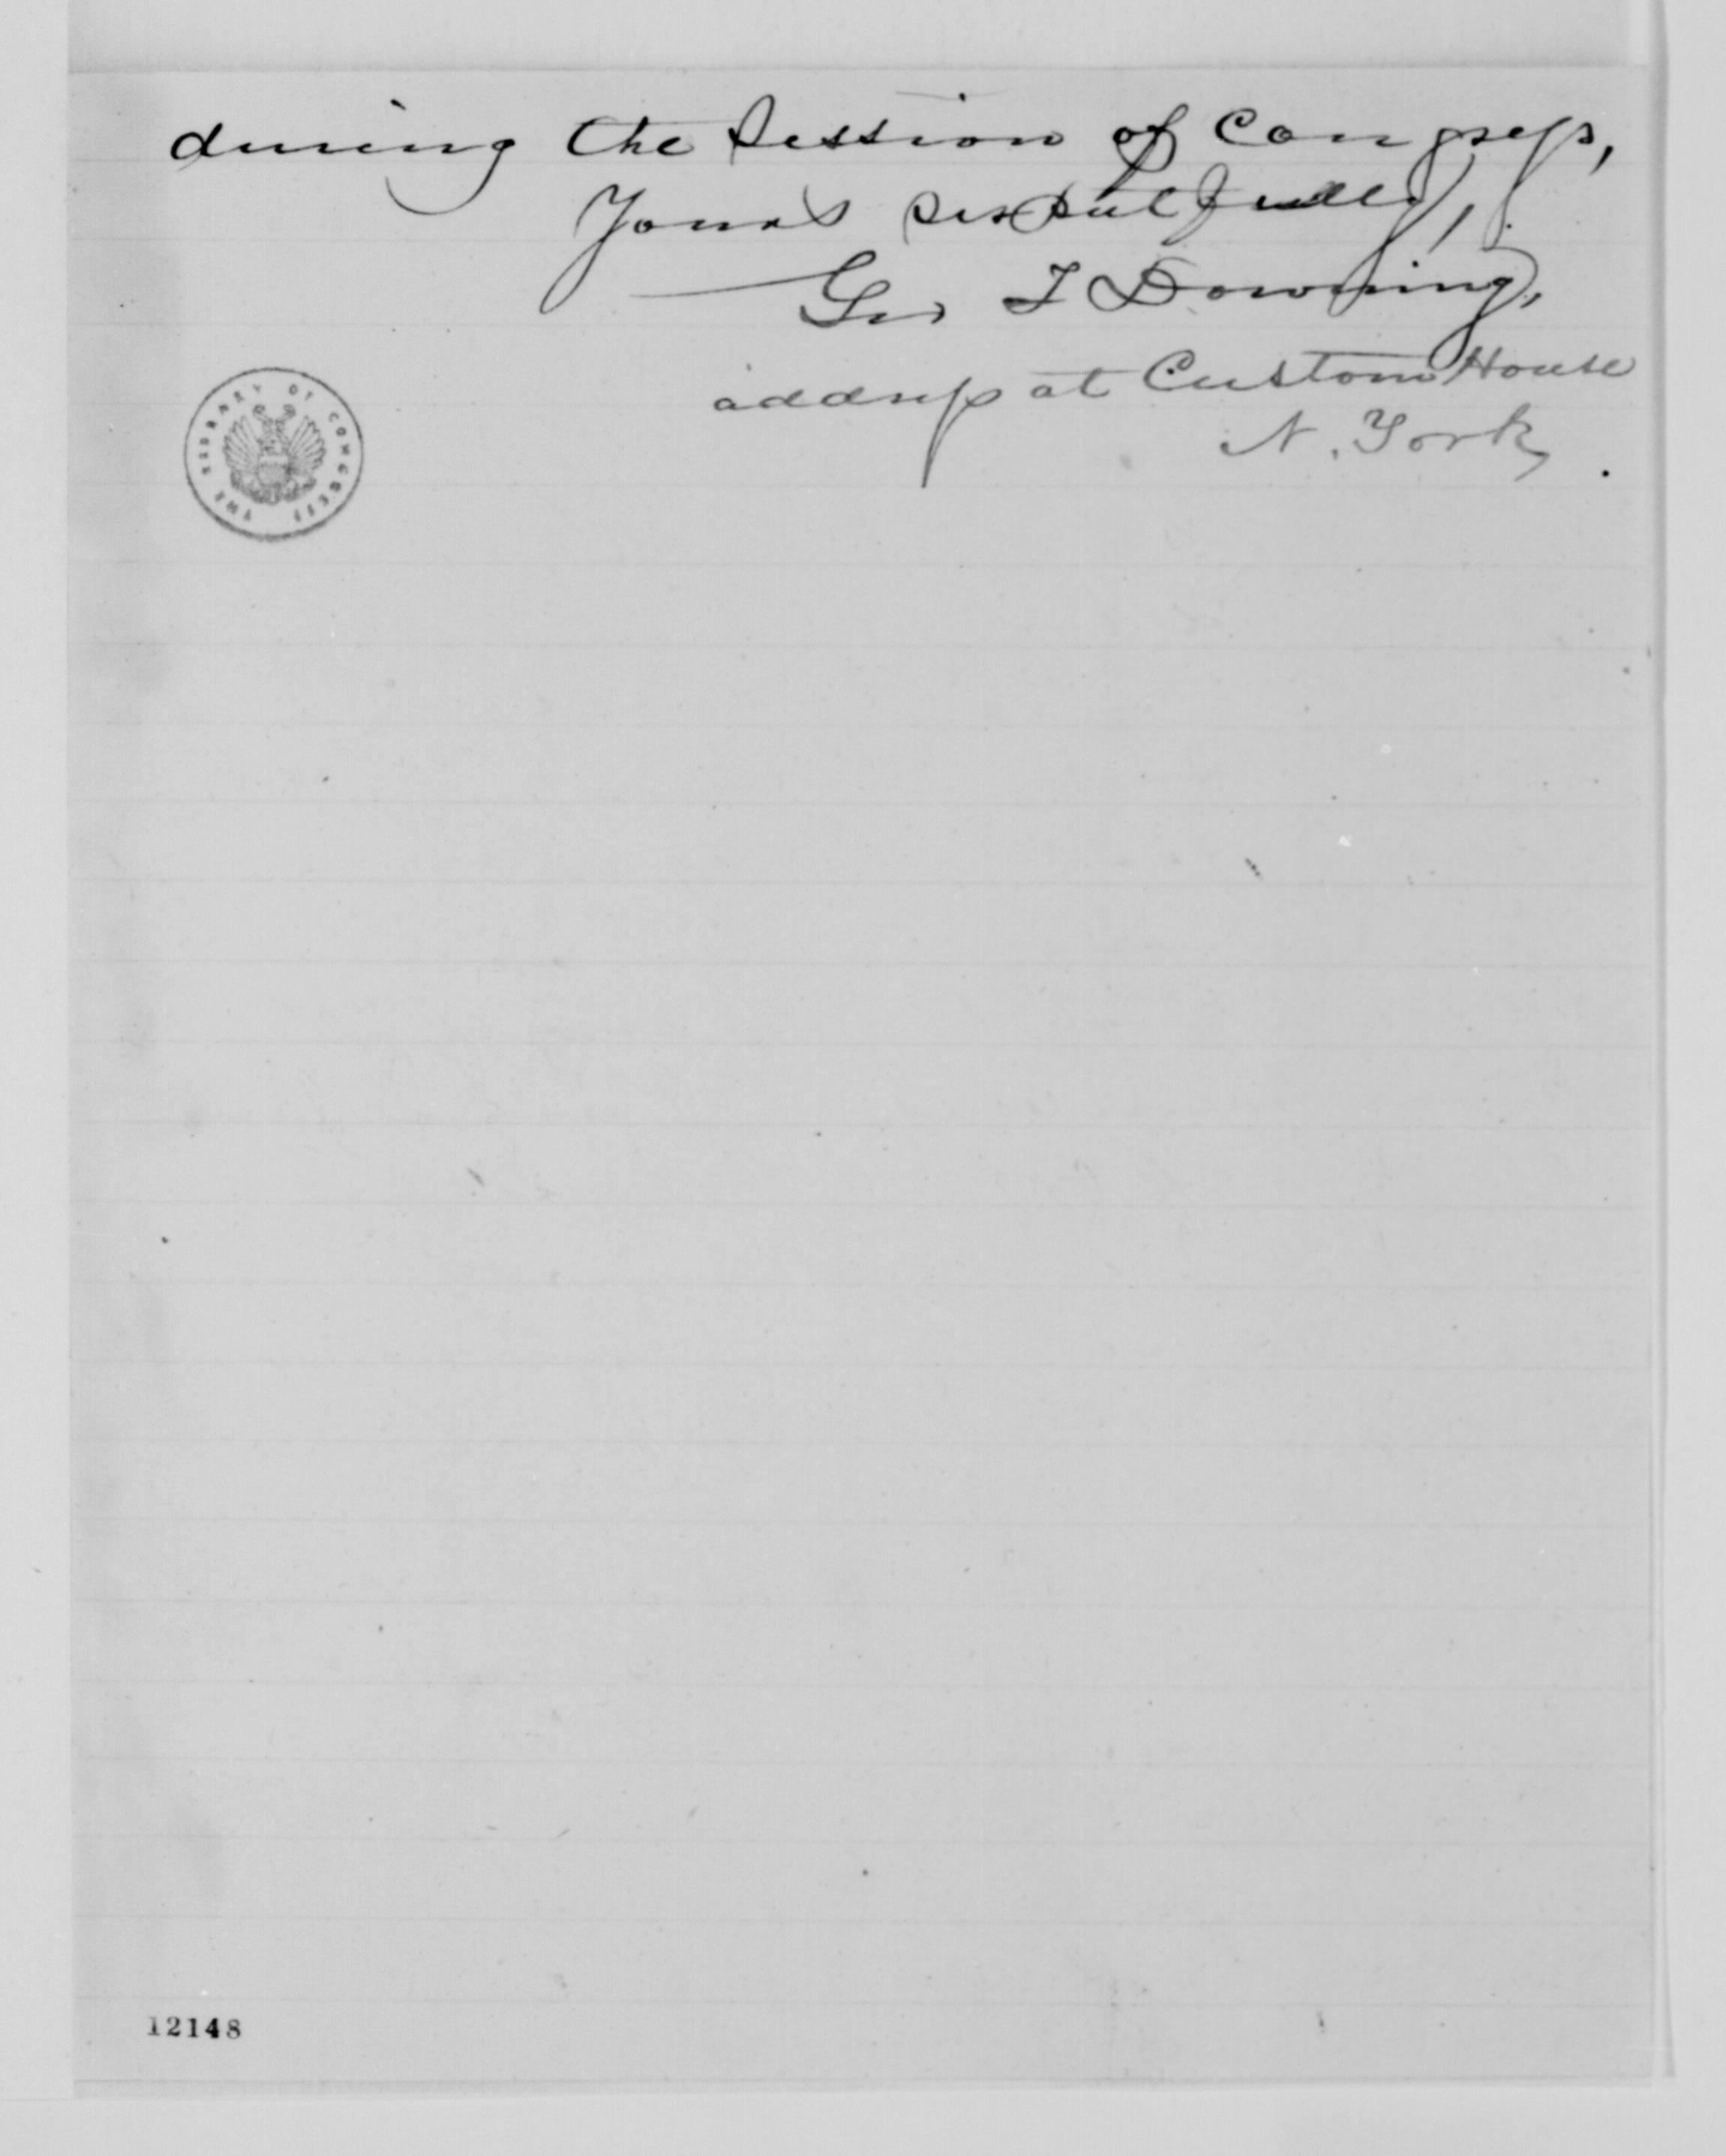 during the Session of Congress,
Yours respectfully,
Geo T Downing,
address at Custom House
N. York
THE LIBRARY OF CONGRESS
12148